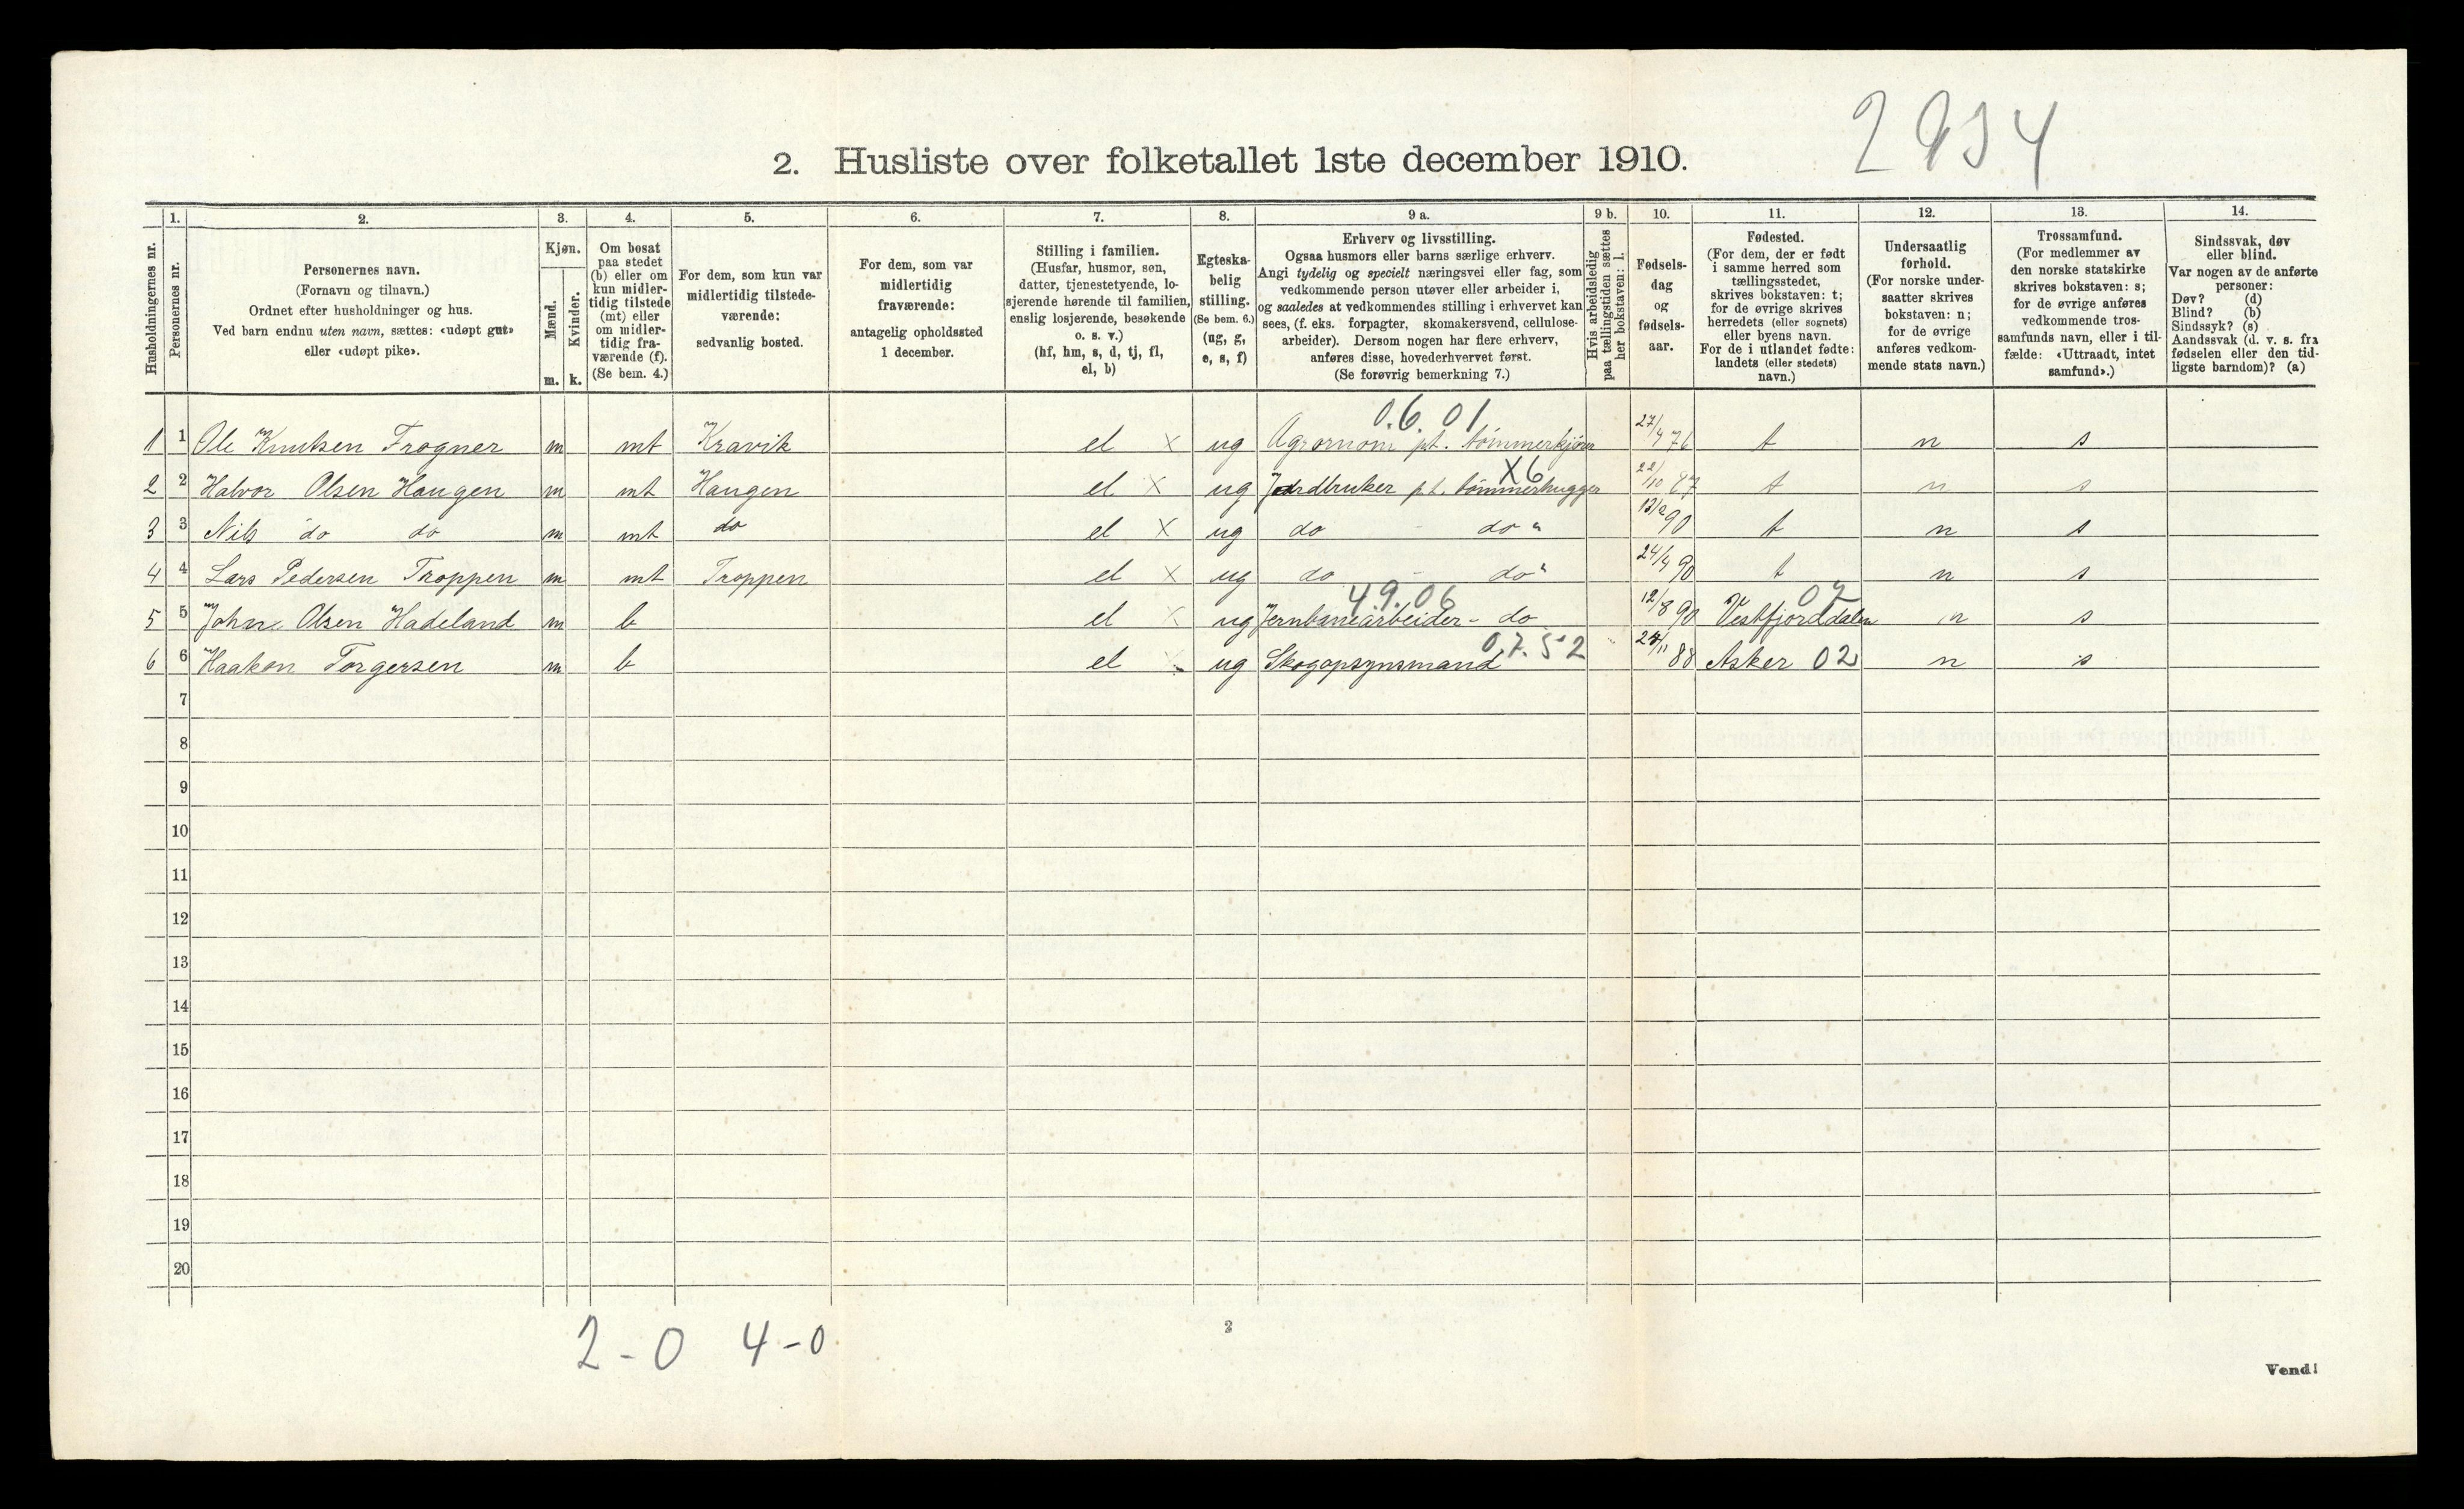 2934
2. Husliste over folketallet 1ste december 1910.
Husholdningernes nr.
1.
Personernes nr.
2.
Personernes navn.
(Fornavn og tilnavn.)
Ordnet efter husholdninger og hus.
Ved barn endnu uten navn, sættes: «udøpt gut»
eller «udøpt pike».
3.
Kjøn.
Mænd.
Kvinder.
m. k.
4.
Om bosat
paa stedet
(b) eller om
kun midler-
tidig tilstede
(mt) eller
om midler-
tidig fra-
værende (f).
(Se bem. 4.)
5.
For dem, som kun var
midlertidig tilstede-
værende:
sedvanlig bosted.
6.
For dem, som var
midlertidig
fraværende:
antagelig opholdssted
1 december.
7.
Stilling i familien.
(Husfar, husmor, søn,
datter, tjenestetyende, lo-
sjerende hørende til familien,
enslig losjerende, besøkende
o. s. v.)
(hf, hm, s, d, tj, fl,
el, b)
8.
Egteska-
belig
stilling.
(Se bem. 6.)
(ug, g,
e, s, f)
9 a.
Erhverv og livsstilling.
Ogsaa husmors eller barns særlige erhverv.
Angi tydelig og specielt næringsvei eller fag, som
vedkommende person utøver eller arbeider i,
og saaledes at vedkommendes stilling i erhvervet kan
sees, (f. eks. forpagter, skomakersvend, cellulose-
arbeider). Dersom nogen har flere erhverv,
anføres disse, hovederhvervet først.
(Se forøvrig bemerkning 7.)
9 b.
Hvis arbeidsledig
paa tællingstiden sættes
her bokstaven: l.
10.
Fødsels-
dag
og
fødsels-
aar.
11.
Fødested.
(For dem, der er født
i samme herred som
tællingsstedet,
skrives bokstaven: t;
for de øvrige skrives
herredets (eller sognets)
eller byens navn.
For de i utlandet fødte:
landets (eller stedets)
navn.)
12.
Undersaatlig
forhold.
(For norske under-
saatter skrives
bokstaven: n;
for de øvrige
anføres vedkom-
mende stats navn.)
13.
Trossamfund.
(For medlemmer av
den norske statskirke
skrives bokstaven: s;
for de øvrige anføres
vedkommende tros-
samfunds navn, eller i til-
fælde: «Uttraadt, intet
samfund».)
14.
Sindssvak, døv
eller blind.
Var nogen av de anførte
personer:
Døv? (d)
Blind? (b)
Sindssyk? (s)
Aandssvak (d. v. s. fra
fødselen eller den tid-
ligste barndom)? (a)
0.6.01
1 1 Ole Knutsen Frogner m mt Kravik el x ug Agronom pt. tömmerkjörer 27/4 76 t n s
X6
2 2 Halvor Olsen Haugen m mt Haugen el x ug Jordbruker p.t. tömmerhugger 22/10 87 t n s
3 3 Nils do do m mt do el x ug do - do " 13/2 90 t n s
4 4 Lars Pedersen Troppen m mt Troppen el x ug do - do " 24/9 90 t n s
4.9.06 07
5 5 John Olsen Hadeland m b el x ug Jernbanearbeider - do 12/8 90 Vestfjorddalen n s
07.52
6 6 Haakon Torgersen m b el x ug Skogopsynsmand 24/11 88 Asker 02 n s
7
8
9
10
11
12
13
14
15
16
17
18
19
20
2-0 4-0
2
Vend!